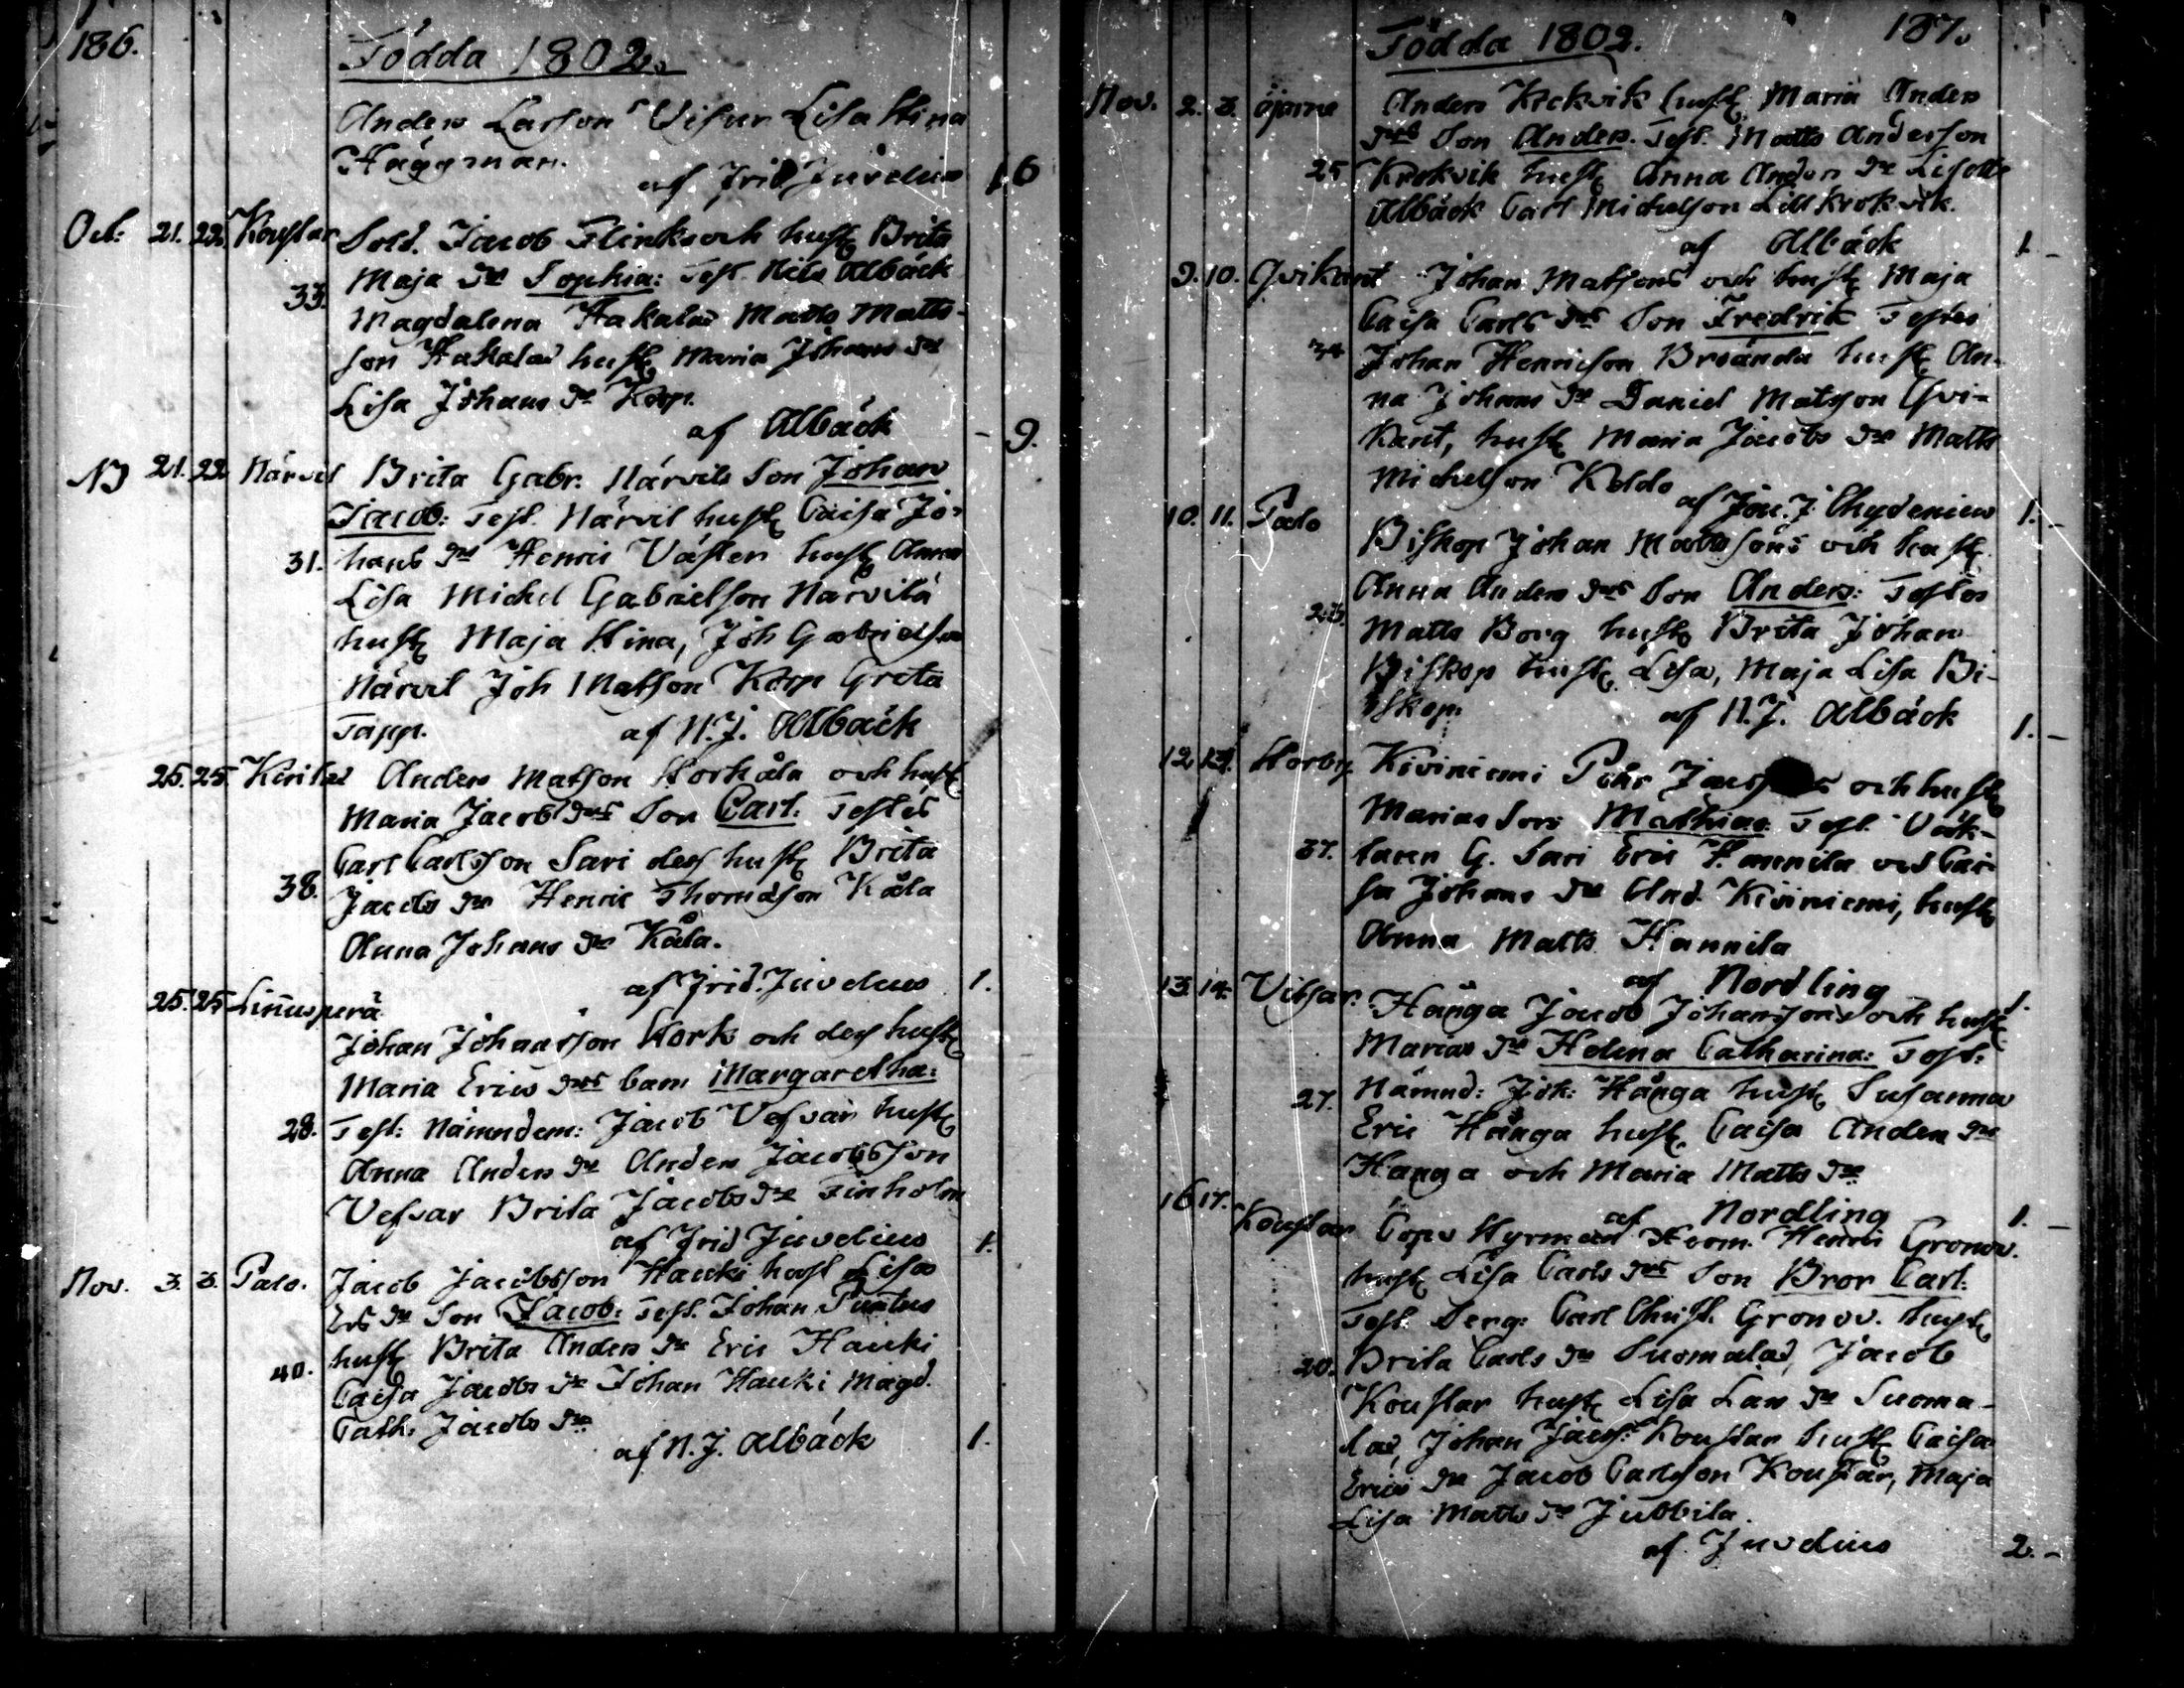 186.
Födda 1802.
Anders Larson Visur Lisa Stina
Häggman.
af Frid Juvelius 1,6
Oct: 21. 22. Koustar Sold. Jacob Flinks och hust. Brita
Maja dr Sophia: Test. Nils Albäck
33. Magdalena Hakalad Matts Matts-
son Hakalad hust. Maria Johans dr
Lisa Johans dr Korp.
af Albäck - 9.
NB 21. 22 Närvil Brita Gabr. Närvils Son Johan
Jacob: Test. Närvil hust. Caisa Jo-
31. hans dr Henric Väster hust. Anna
Lisa Michel Gabrielson Närvilä
hust. Maja Stina, Joh Gabrielson
Närvil Joh Matson Korp Greta
Tapp. af N.J. Albäck
25. 25. Anders Matson Storkåla och hust.
Maria Jacobs drs Son Carl: Testes
Carl Carlsson Sari dess hust. Brita
38. Jacobs dr Henric Thomasson Kåla
Anna Johans dr Kåla.
af Frid. Juvelius 1.
25. 25 Linnusperä
Johan Johansson Stork och dess hust.
Maria Erics drs barn Margaretha:
28. Test: Nämndem: Jacob Vefsar hust.
Anna Anders dr Anders Jacobsson
Vefsar Brita Jacobs dr Finholm
af Frid Juvelius 1.
Nov. 3. 3. Palo. Jacob Jacobsson Hauki hust Lisa
Ers dr Son Jacob: Test. Johan Puntus
hust. Brita Anders dr Eric Hauki
40. Caisa Jacobs dr Johan Hauki Magd.
Cath. Jacobs dr
af N.J. Albäck 1.
Födda 1802. 187.
Nov. 2. 3. öjarne Anders Krokvik hust. Maria Anders
drs Son Anders. Test. Matts Anderson
25 Krokvik hust. Anna Anders dr Lisette
Albäck Carl Michelson Lillkrokvik.
af Albäck 1. -
9. 10. Qvikant Johan Matsons och hust. Maja
Caisa Carls drs Son Fredrik Testes
34 Johan Henricson Brännda hust. An-
na Johans dr Daniel Matson Qvi-
kant, hust. Maria Jacobs dr Matts
Michelson Keldo
af Joh. J. Chydenius 1. -
10. 11. Palo
Biskop Johan Mattssons och hust.
Anna Anders drs Son Anders: Testes
23. Matts Borg hust. Brita Johan
Biskop hust. Lisa, Maja Lisa Bi-
skop. af N.J. Albäck 1. -
12 13. Storby Kiviniemi Pehr och hust.
Marias Son Mathias Test.
37. G. Sari Eric Hannila och Cai-
sa Johans dr And. Kiviniemi, hust.
Anna Matts Hannila
af Nordling 1.
13. 14. Vitsar. Hånga Jacob Johansons och hust.
Marias dr Helena Catharina: Test:
27. Nämnd: Joh: Hånga hust. Susanna
Eric Hånga hust. Caisa Anders dr
Hånga och Maria Matts dr
af Nordling 1. -
16 17. Koustar Henric Gronov.
hust. Lisa Carls drs Son Bror Carl:
Test. Serg: Carl Christ. Gronov. hust.
20. Brita Carls dr Suomalad, Jacob
Koustar hust. Lisa Lars dr Suoma-
lad, Johan Jacs: Koustar hust. Caisa
Erics dr Jacob Carlsson Koustar, Maja
Lisa Matts dr Jubbila.
af. Juvelius 2. -